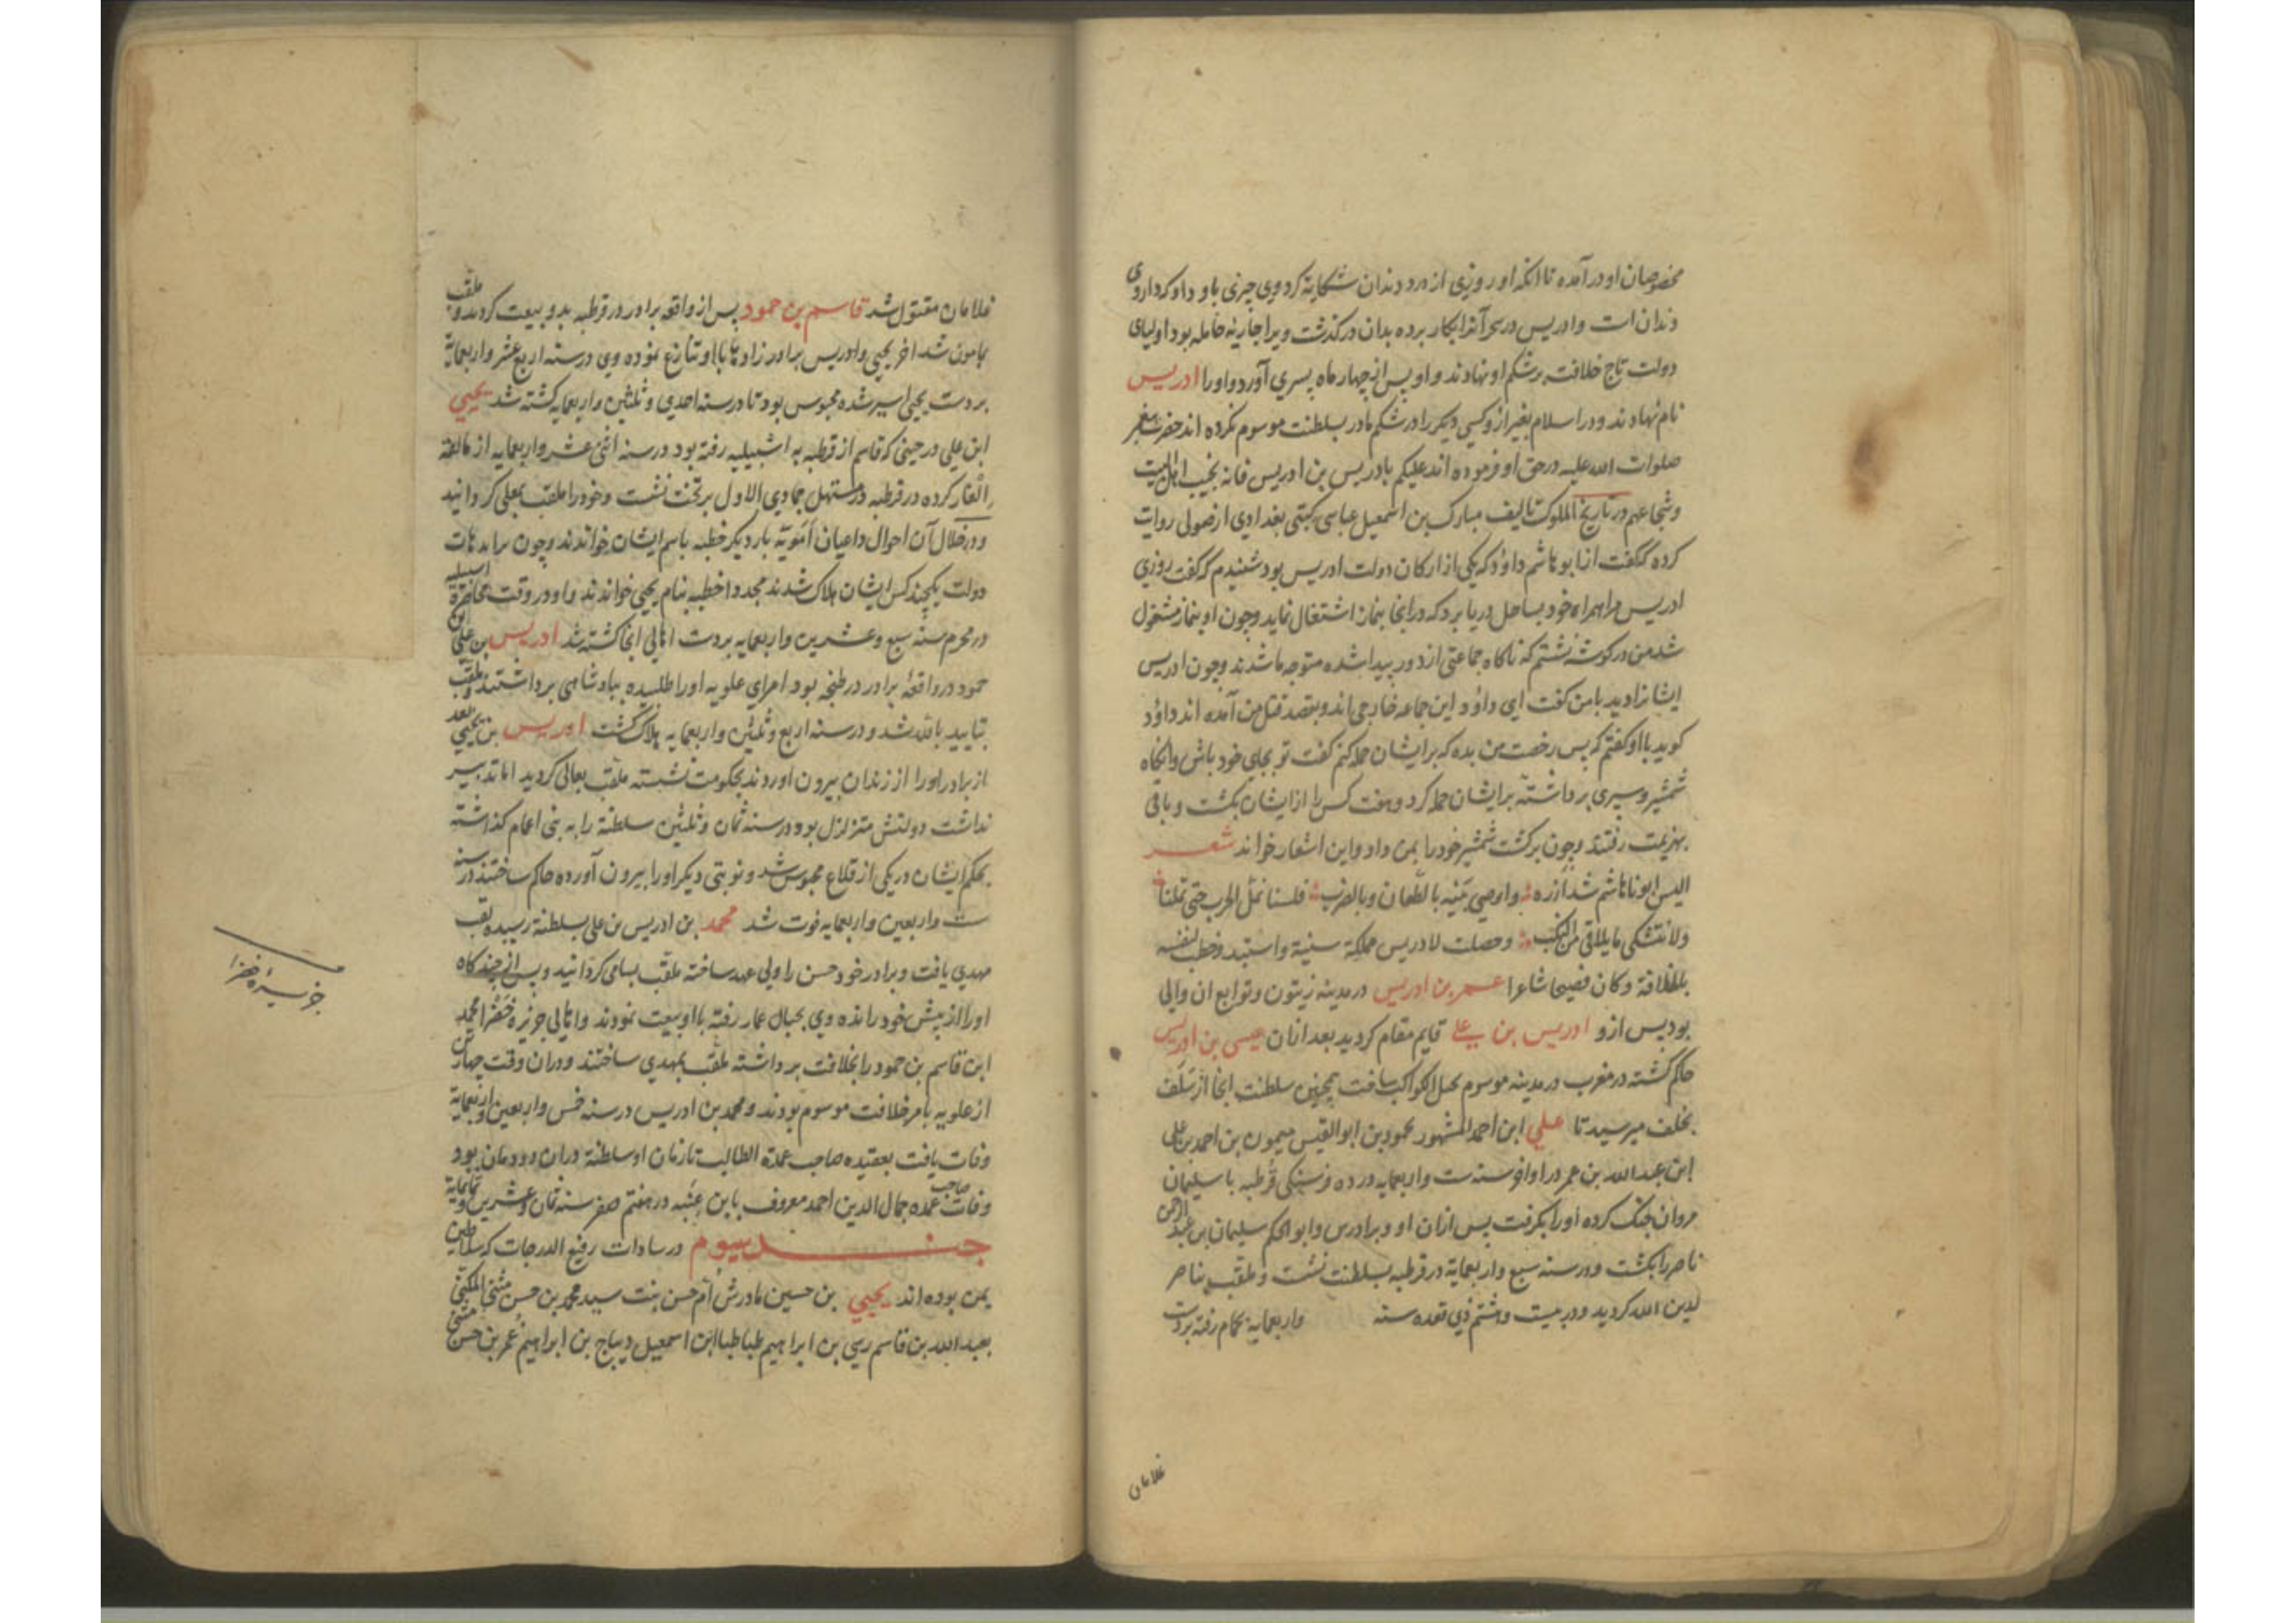 مخصوصان او در آمده تا انکه او روزی از درد دندان شکایة کرد وی چیزی باو داد که داروی
دندان است و ادریس در سحر آنرا بکار برده بدان درکذشت ویرا جاریۀ حامله بود اولیای
دولت تاج خلافت بر شکم او نهادند و او پس از چهار ماه پسری آورد و او را ادریس
نام نهادند و در اسلام بغیر از و کسی دیکر را در شکم مادر بسلطنت موسوم نکرده اند حضرت پیغمبر
صلوات الله علیه در حق او فرموده اند علیکم بادریس بن ادریس فانه نجیب اهل البیت
و شجاعهم در تاریخ الملوک تالیف مبارک بن اسمعیل عباسی کبتی بغدادی از صولی روایت
کرده که گفت از ابو هاشم داؤد که یکی از ارکان دولت ادریس بود شنیدم که گفت روزی
ادریس مرا همراه خود بساحل دریا برد که در انجا بنماز اشتغال نماید و چون او بنماز مشغول
شد من در کوشۀ نشستم که ناکاه جماعتی از دور پیدا شده متوجه ما شدند و چون ادریس
ایشانرا دید با من کفت ای داؤد این جماعه خارجی اند و بقصد قتل من آمده اند داؤد
کوید با او کفتم که پس رخصت من بده که بر ایشان حمله کنم کفت تو بجای خود باش و انکاه
شمشیر و سپری برداشته بر ایشان حمله کرد و هفت کس را از ایشان بکشت و باقی
بهزیمت رفتند و چون برکشت شمشیر خود را بمن داد و این اشعار خواند شعر
الیس ابونا هاشم شد ازره و اوصی بنیه بالطعان و بالضرب فلسنا نمل الحرب حتی تملنا
ولا نشتکی ما یلاقی من النکب و حصلت لادریس مملکة سنیة و استبد و خطب لنفسه
بالخلافة و کان فصیحا شاعرا عمر بن ادریس در مدینه زیتون و توابع ان والی
بود پس ازو ادریس بن علی قایم مقام کردید بعد ازان عیسی بن ادریس
حاکم کشته در مغرب در مدینه موسوم بحبل الکواکب ساخت همچنین سلطنت انجا از سلف
بخلف میرسید تا علی ابن احمد المشهور بحمود بن ابو القیس میمون بن احمد بن علی
ابن عبد الله بن عمر در اواخر سنه ست و اربعمایه در ده فرسنکی قرطبه با سلیمان
مروان جنک کرده او را بکرفت پس ازان او و برادرس و ابو الحکم سلیمان بن عبد الرحمن
ناصر را بکشت و در سنه سبع و اربعمایة در قرطبه بسلطنت نشست و ملقب بناصر
لدین الله کردید و در بیست و هشتم ذی قعده سنه و اربعمایه بحمام رفته بردست
غلامان
غلامان مقتول شد قاسم بن حمود پس از واقعه برادر در قرطبه بدو بیعت کردند و ملقب
بمامون شد اخر یحیی و ادریس برادر زاد هایا با او تنازع نموده وی در سنه اربع عشر و اربعمایة
بردست یحیی اسیر شده محبوس بود تا در سنه احدی و ثلثین و اربعمایه کشته شد یحیی
ابن علی در حینی که قاسم از قرطبه به اشبیلیه رفته بود در سنه اثنی عشر و اربعمایه از مالقه
ایلغار کرده در قرطبه در مستهل جمادی الاول بر تخت نشست و خود را ملقب بمعلی کردانید
و در خلال آن احوال داعیان امویة بار دیکر خطبه باسم ایشان خواندند و چون براید هات
دولت یکچند کس ایشان هلاک شدند مجددا خطبه بنام یحیی خواندند و او در وقت محاصرۀ اشبیلیه
در محرم سنه سبع و عشرین و اربعمایه بردست اهالی انجا کشته شد ادریس بن علی بن
حمود در واقعۀ برادر در طنجه بود امرای علویه او را طلبیده بپادشاهی برداشتند و ملقب
بتایید بالله شد و در سنه اربع و ثلثین و اربعمایه هلاک کشت ادریس بن یحیی بعد
از برادر او را از زندان بیرون اوردند بحکومت نشسته ملقب بعالی کردید اما تدبیر
نداشت دولتش متزلزل بود در سنه ثمان و ثلثین سلطنة را به بنی اعمام کذاشته
بحکم ایشان در یکی از قلاع محبوس شد و نوبتی دیکر او را بیرون آورده حاکم ساختند در سنه
ست و اربعین و اربعمایه فوت شد محمد بن ادریس بن علی بسلطنة رسیده لقب
مهدی یافت و برادر خود حسن را ولی عهد ساخته ملقب بسامی کردانید و پس از چند کاه
او را از پیش خود رانده وی بجبال عمار رفته با او بیعت نمودند و اهالی جزیره خضرا محمد
ابن قاسم بن حمود را بخلافت برداشته ملقب بمهدی ساختند و دران وقت چهار تن
از علویه بامر خلافت موسوم بودند و محمد بن ادریس در سنه خمس و اربعین و اربعمایة
وفات یافت بعقیده صاحب عمدة الطالب تا زمان او سلطنة دران دودمان بود
وفات صاحب عمده جمال الدین احمد معروف بابن عنبه در هفتم صفر سنه ثمان و عشرین و ثمانمایة
جند سیوم در سادات رفیع الدرجات که سلاطین
یمن بوده اند یحیی بن حسین مادرش ام حسن بنت سید محمد بن حسن مثنی المکنی
بعبد الله بن قاسم رسی بن ابراهیم طباطبا ابن اسمعیل دیباج بن ابراهیم غمر بن حسن مثنی
جزیرۀ خضرا